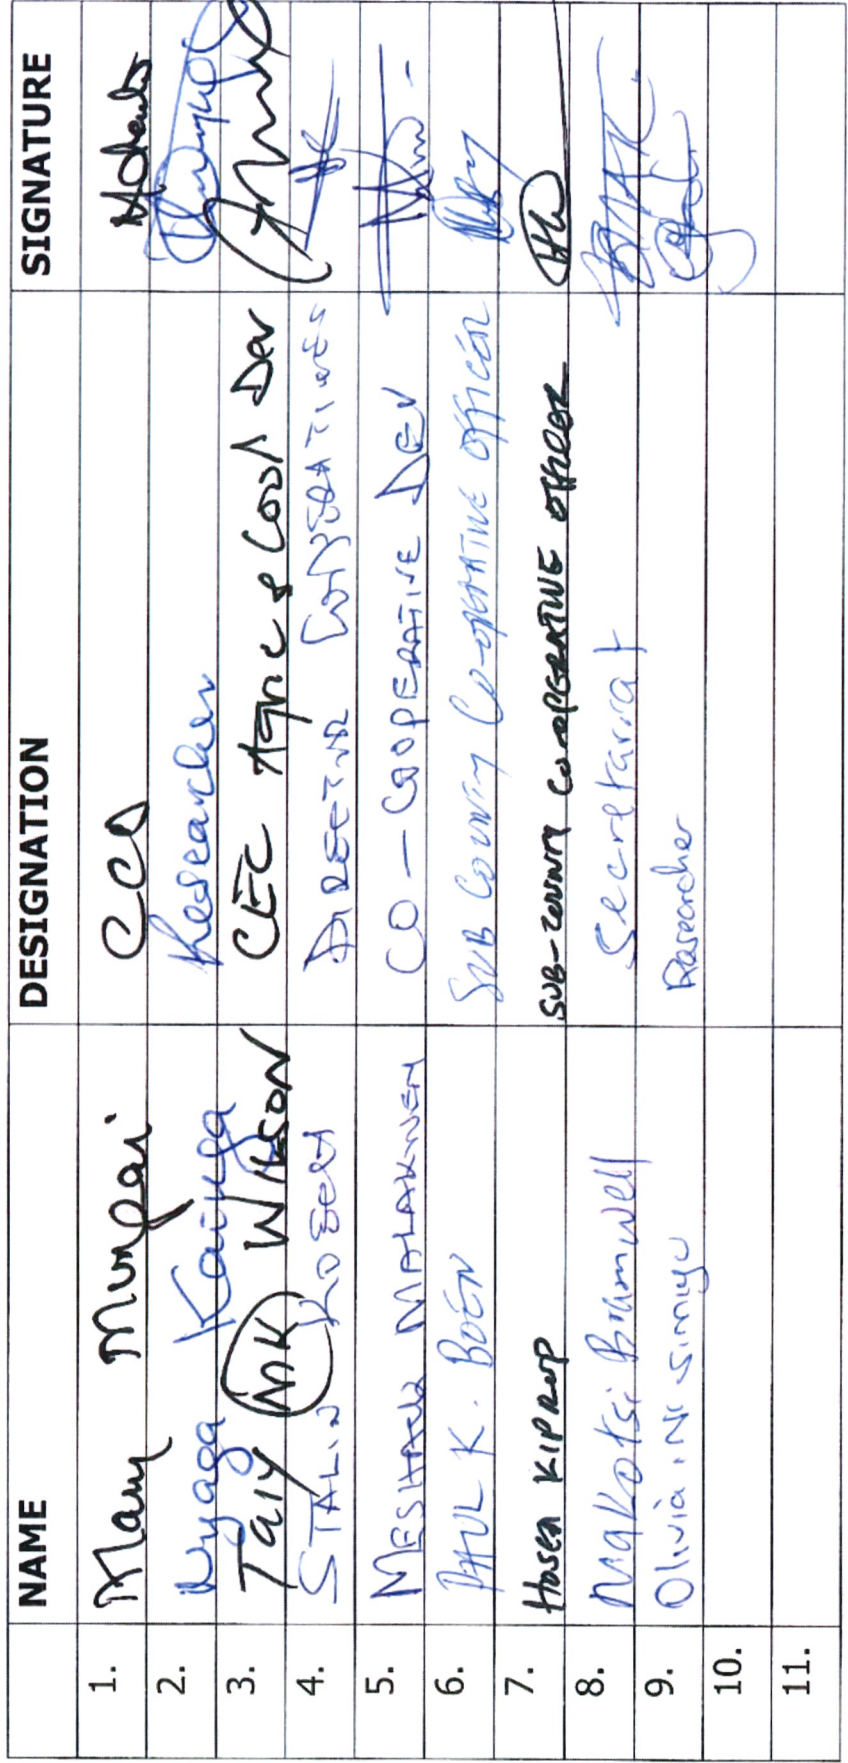 NAME DESIGNATION SIGNATURE
1. Mary Mungai CCO
2. Nyaga Kainga Researcher
3. Taiy MK WILSON CEC Agric & Coop Dev
4. STALIN KOSGEI DIRECTOR COOPERATIVES
5. MESHACK MALAKWEN CO - COOPERATIVE DEV
6. PAUL K. BOEN SUB COUNTY CO-OPERATIVE OFFICER
7. HOSEA KIPROP SUB-COUNTY CO-OPERATIVE OFFICER
8. Makotsi Bramwell Secretariat
9. Olivia .N. Simiyu Researcher
10.
11.